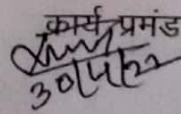 कार्य प्रमंड
30/4/22